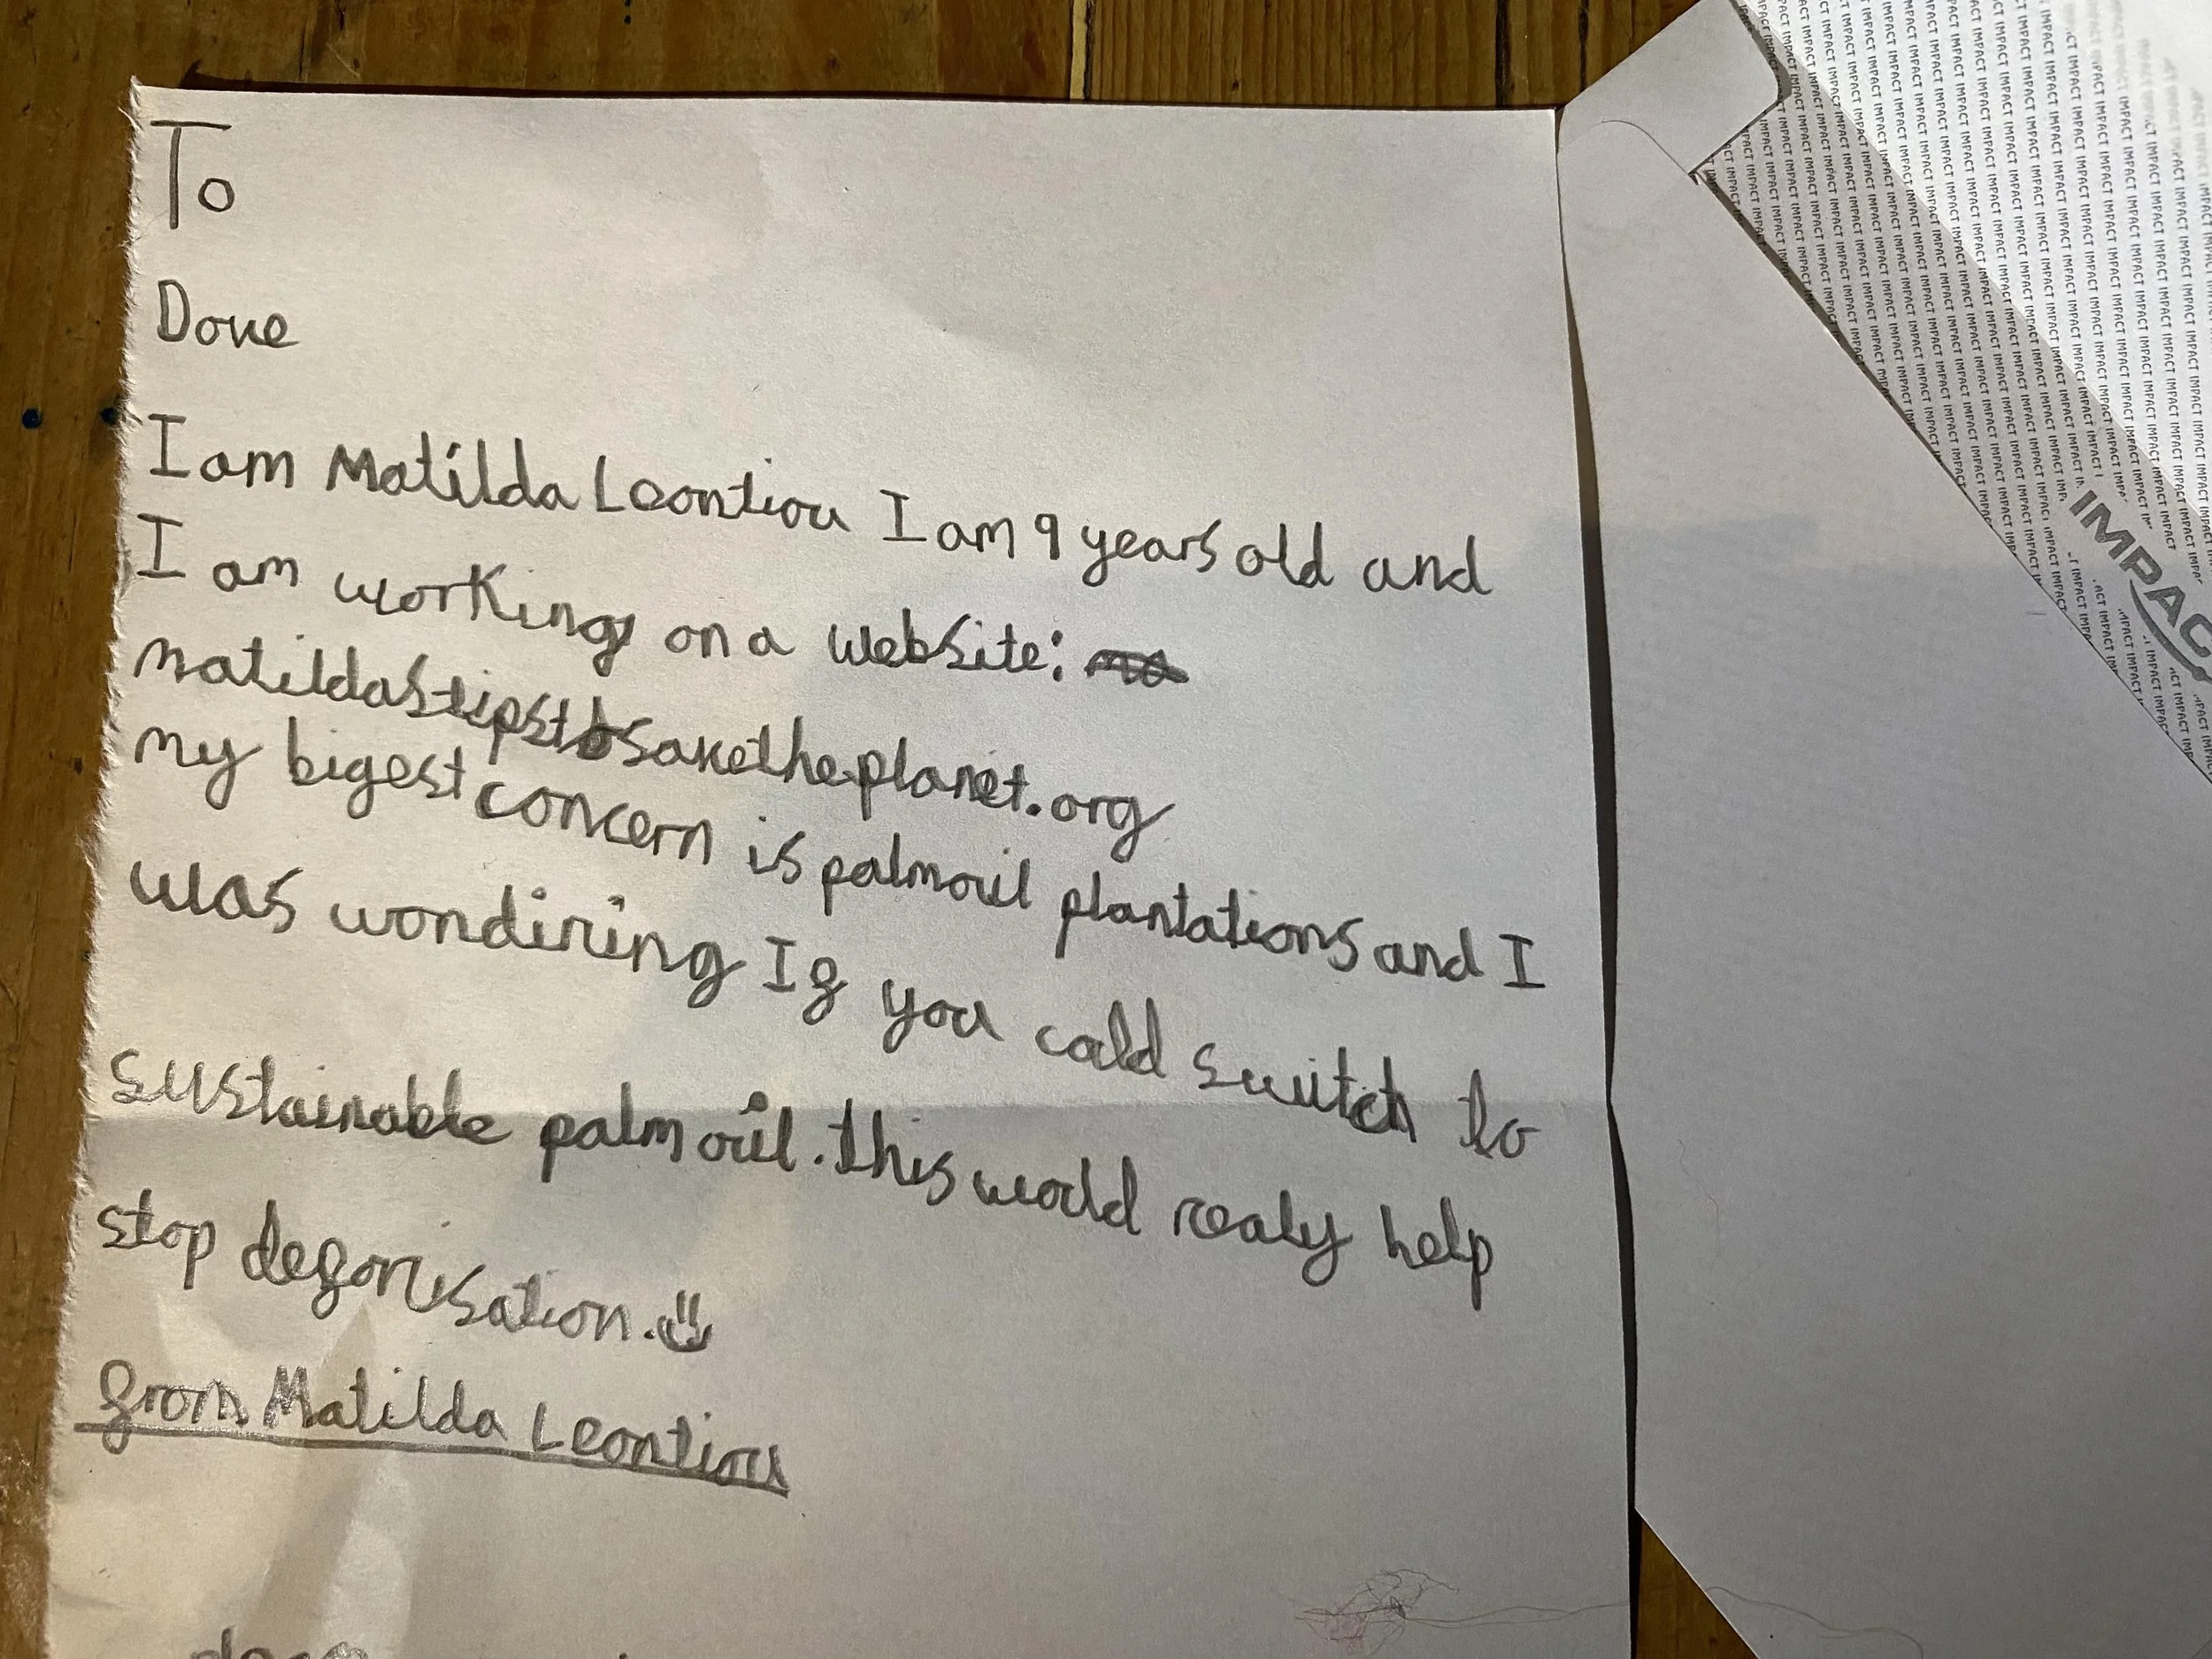 To
Dove
I am Matilda Leontiou I am 9 years old and
I am working on a website: ma
matildastipstosavetheplanet.org
my bigest concern is palmoil plantations and I
was wondiring If you cald switch to
sustainable palm oil. this would realy help
stop deforisation.
from Matilda Leontiou
IMPACT